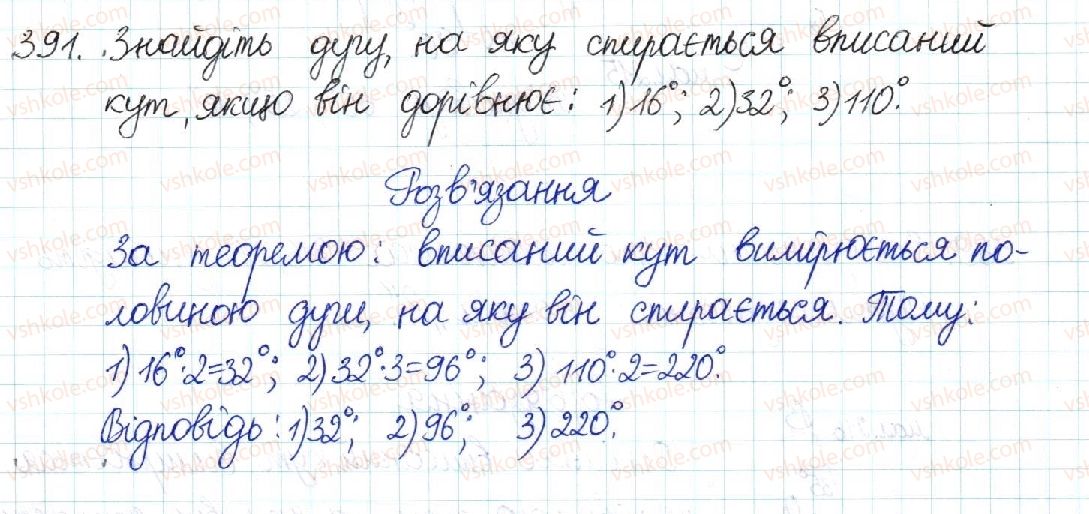 391. Знайдіть дугу, на яку спирається вписаний
кут, якщо він дорівнює: 1) 16°; 2) 32°; 3) 110°.
Розв'язання
За теоремою: вписаний кут вимірюється по-
ловиною дуги, на яку він спирається. Тому:
1) 16°·2=32°; 2) 32°·3=96°; 3) 110°·2=220°.
Відповідь: 1) 32°; 2) 96°; 3) 220°.
vshkole.com